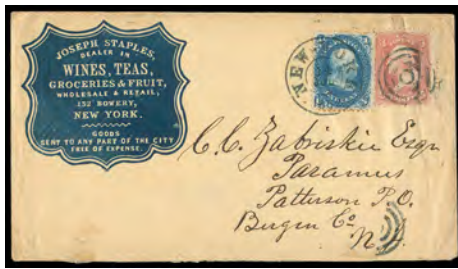 JOSEPH STAPLES,
DEALER IN
WINES, TEAS,
GROCERIES & FRUIT,
WHOLESALE & RETAIL,
132 BOWERY,
NEW YORK.
GOODS
SENT TO ANY PART OF THE CITY
FREE OF EXPENSE.
NEW
C. C. Zabriskie Esqr
Paramus
Patterson P.O.
Bergen Co.
N.J.